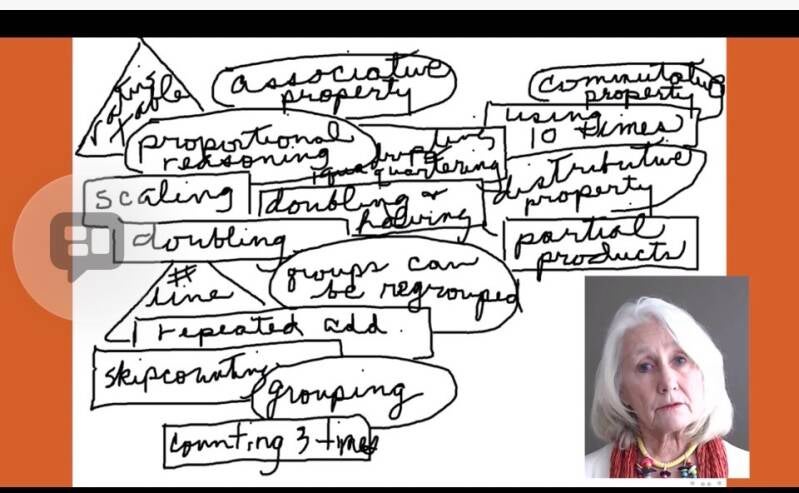 ratio
table
associative
property
commutative
property
proportional
reasoning
using
10 times
quartering
distributive
property
scaling
doubling &
halving
doubling
partial
products
groups can
be regrouped
#
line
repeated add.
skipcounting
grouping
counting 3 times